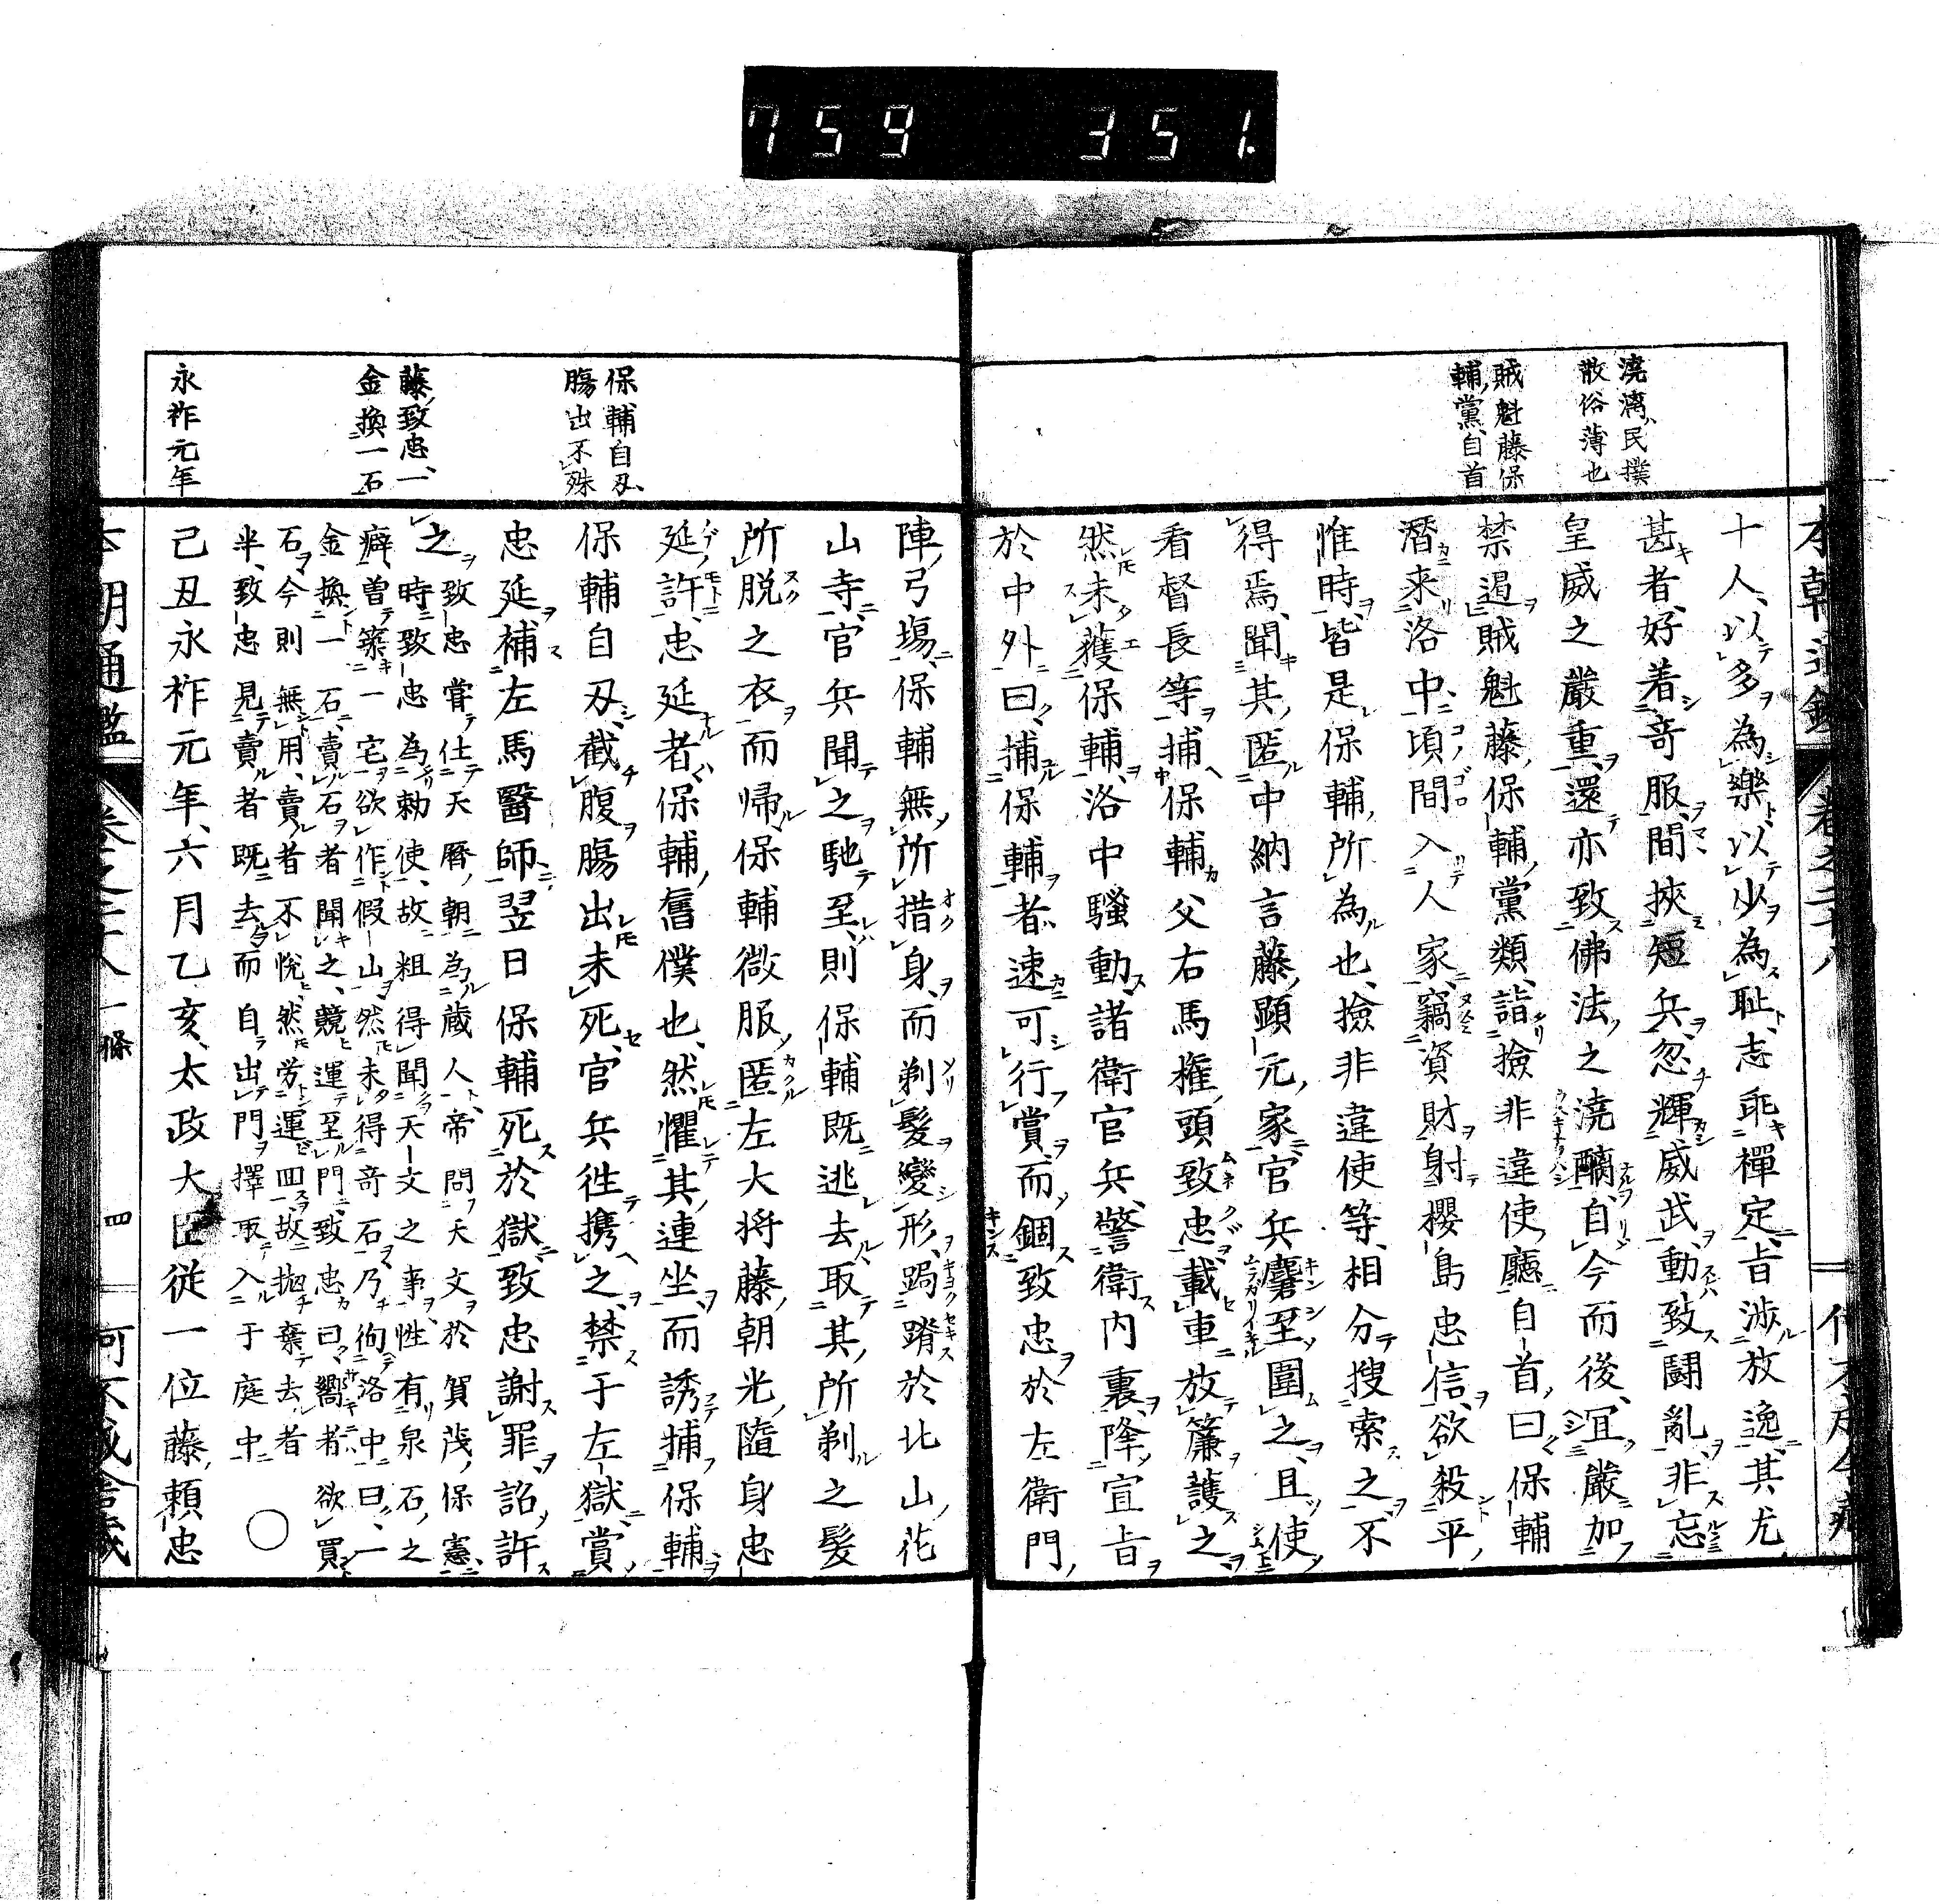 759 351.
澆漓、民撲
散俗薄也
賊魁藤保
輔黨自首
十人、以多為樂、以少為耻、志乖禪定、旨渉放逸、其尤
甚者、好着奇服、間挾短兵、忽輝威武、動致鬪亂、非忘
皇威之嚴重、還亦致佛法之澆醨、自今而後、冝嚴加
禁遏、賊魁藤保輔黨類、詣撿非違使廳自首曰、保輔
潛来洛中、頃間入人家、竊資財、射櫻島忠信、欲殺平
惟時、皆是保輔所為也、撿非違使等、相分搜索之不
得焉、聞其匿中納言藤顕元家、官兵麏至圍之、且使
看督長等、捕保輔父右馬權頭致忠、載車放簾護之、
然未獲保輔、洛中騷動、諸衛官兵、警衛内裏、降宣旨
於中外曰、捕保輔者、速可行賞、而錮致忠於左衛門
保輔自刄、
膓出不殊
藤致忠、一
金換一石
永祚元年
陣弓塲、保輔無所措身、而剃髮變形、跼蹐於北山花
山寺、官兵聞之馳至、則保輔既逃去、取其所剃之髮
所脱之衣而帰、保輔微服匿左大将藤朝光隨身忠
延許、忠延者保輔舊僕也、然懼其連坐、而誘捕保輔
保輔自刄、截腹膓出未死、官兵徃携之、禁于左獄、賞
忠延補左馬醫師、翌日保輔死於獄、致忠謝罪、詔許
之致忠甞仕天暦朝為蔵人、帝問天文於賀茂保憲、
時致忠為勅使、故粗得聞天文之事、性有泉石之
癖、曽築一宅、欲作假山、然未得奇石、乃徇洛中曰、一
金換一石、賣石者聞之、競運至門、致忠曰、嚮者欲買
石、今則無用、賣者不悦、然労運囬、故抛棄去者
半、致忠見賣者既去、而自出門擇取入于庭中 ○
己丑永祚元年、六月乙亥、太政大臣従一位藤頼忠
本朝通鑑 卷之二十八 一條 四